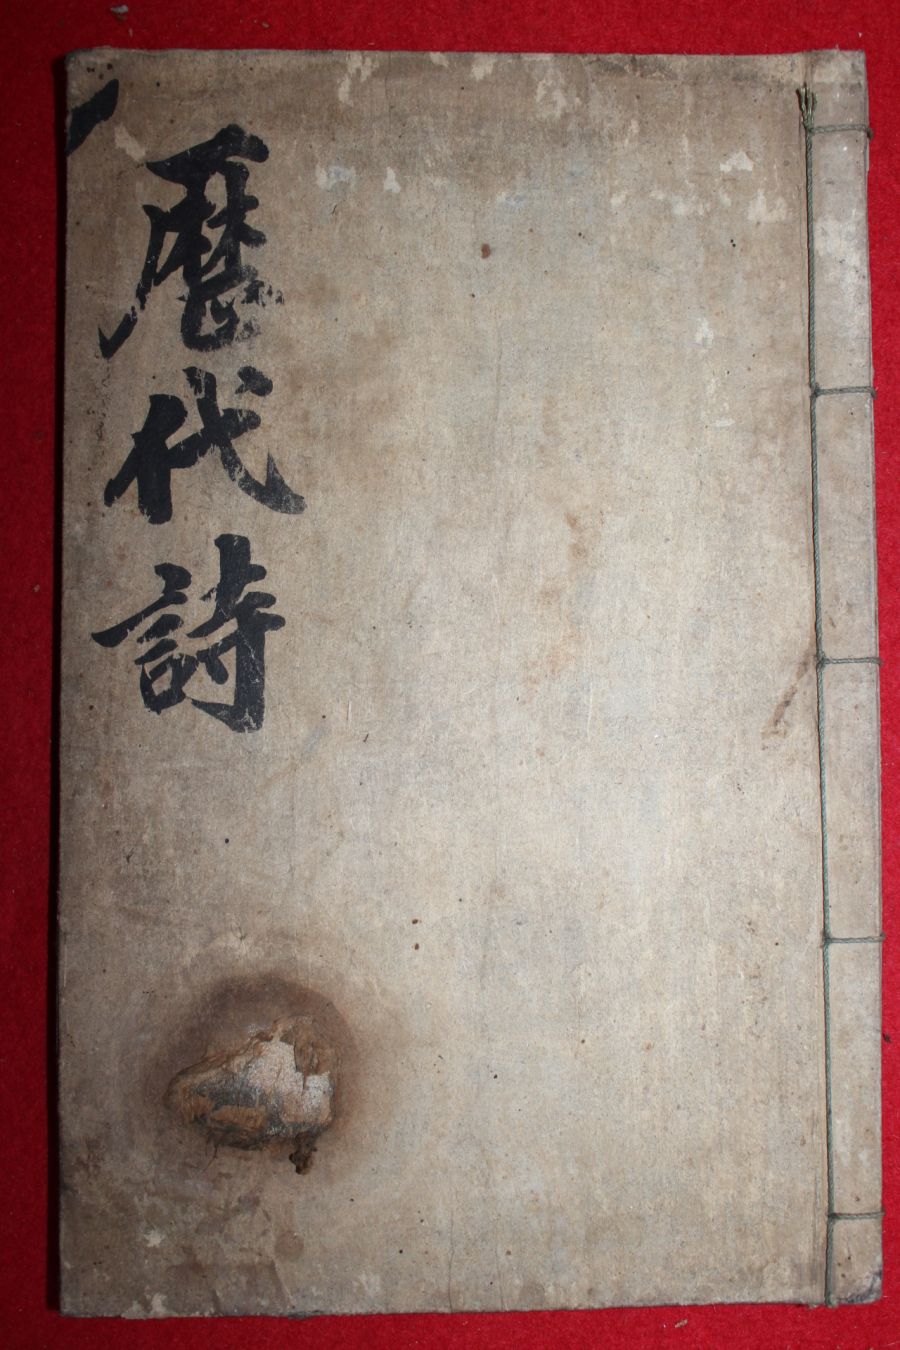 歷代詩